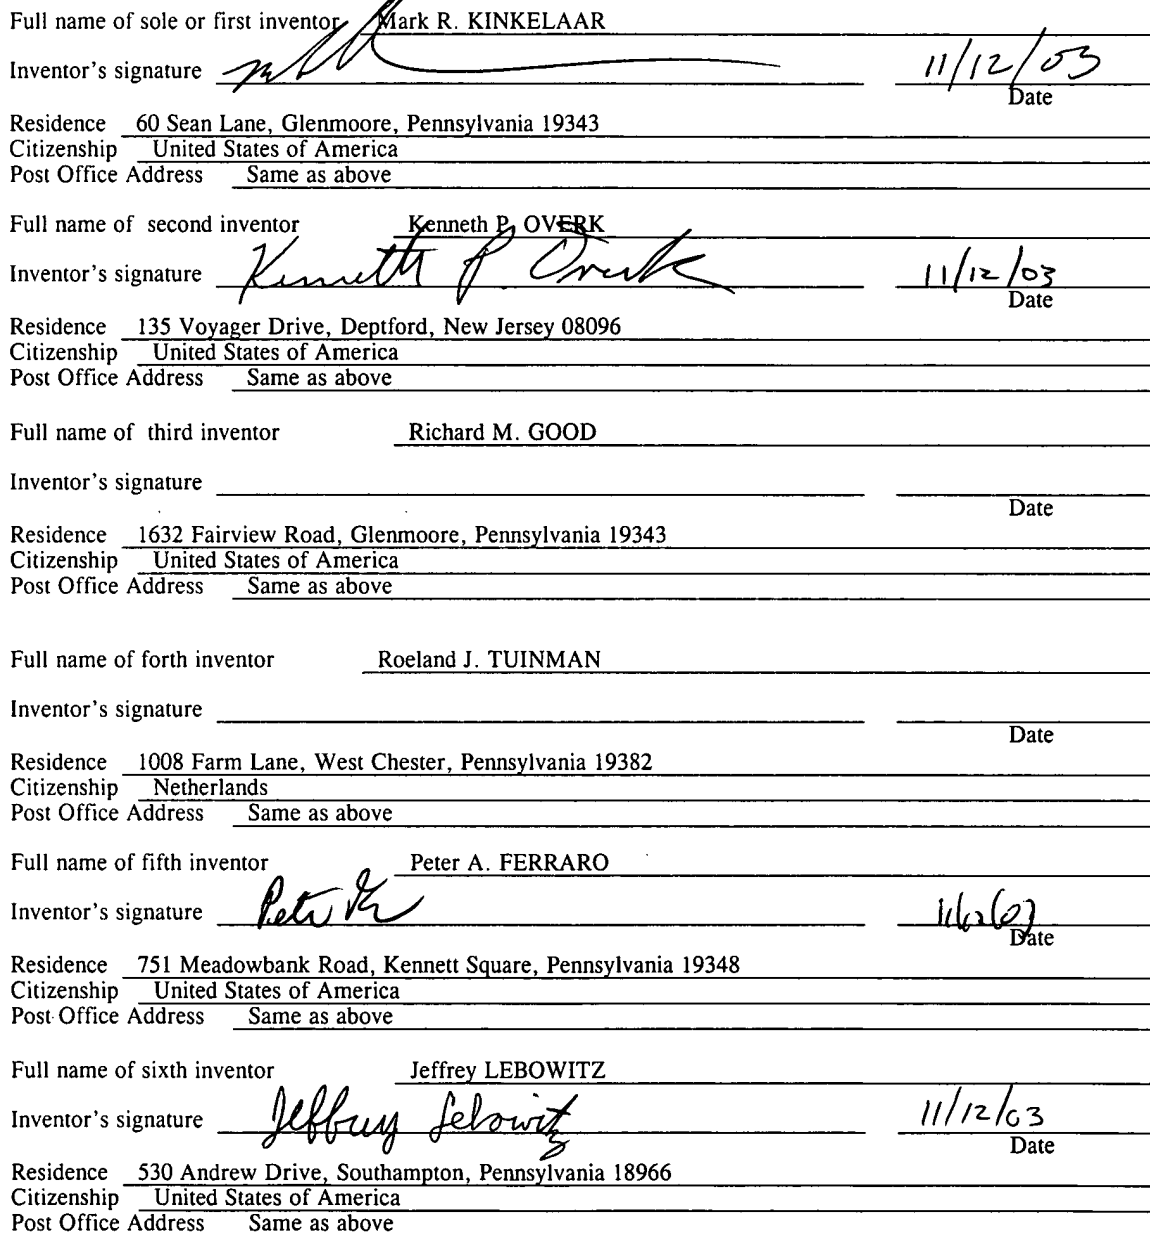 Full name of sole or first inventor Mark R. KINKELAAR
Inventor's signature 11/12/03
Date
Residence 60 Sean Lane, Glenmoore, Pennsylvania 19343
Citizenship United States of America
Post Office Address Same as above
Full name of second inventor Kenneth P. OVERK
Inventor's signature Kenneth P. Overk 11/12/03
Date
Residence 135 Voyager Drive, Deptford, New Jersey 08096
Citizenship United States of America
Post Office Address Same as above
Full name of third inventor Richard M. GOOD
Inventor's signature
Date
Residence 1632 Fairview Road, Glenmoore, Pennsylvania 19343
Citizenship United States of America
Post Office Address Same as above
Full name of forth inventor Roeland J. TUINMAN
Inventor's signature
Date
Residence 1008 Farm Lane, West Chester, Pennsylvania 19382
Citizenship Netherlands
Post Office Address Same as above
Full name of fifth inventor Peter A. FERRARO
Inventor's signature Peter 11/12/03
Date
Residence 751 Meadowbank Road, Kennett Square, Pennsylvania 19348
Citizenship United States of America
Post Office Address Same as above
Full name of sixth inventor Jeffrey LEBOWITZ
Inventor's signature Jeffrey Lebowitz 11/12/03
Date
Residence 530 Andrew Drive, Southampton, Pennsylvania 18966
Citizenship United States of America
Post Office Address Same as above